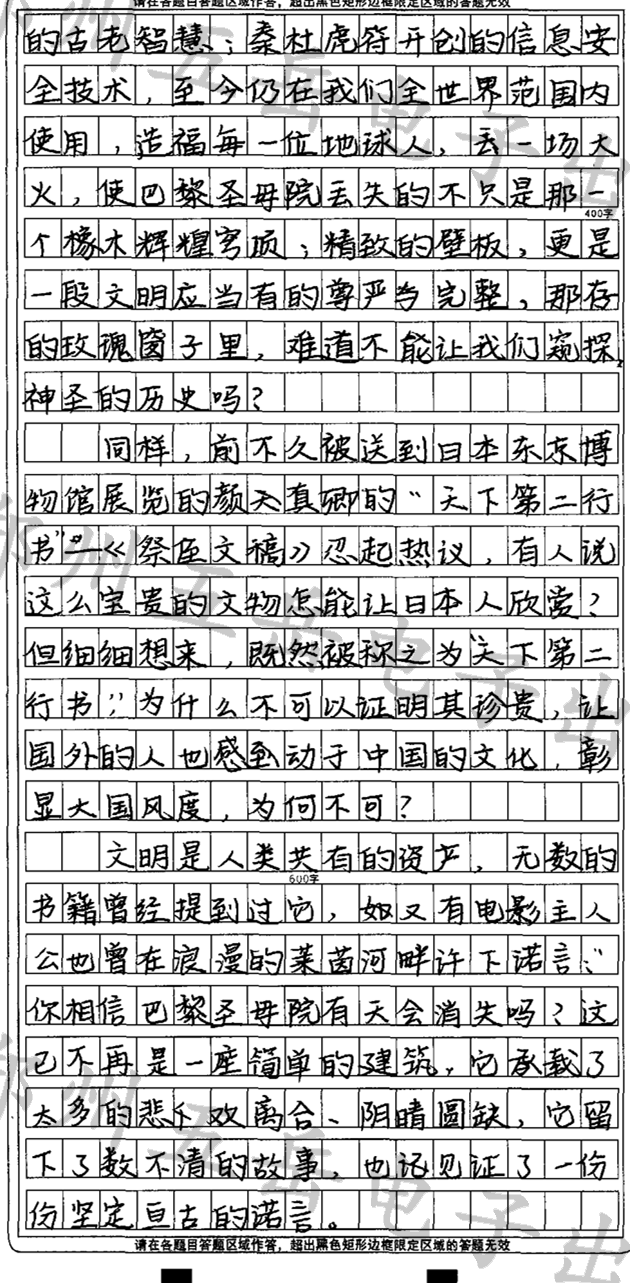 请在各题目答题区域作答，超出黑色矩形边框限定区域的答题无效
的古老智慧；桑杜虎符开创的信息安
全技术，至今仍在我们全世界范围内
使用，造福每一位地球人，丢一场大
火，使巴黎圣母院丢失的不只是那一
400字
个橡木辉煌穹顶；精致的壁板，更是
一段文明应当有的尊严与完整，那存
的玫瑰窗子里，难道不能让我们窥探
神圣的历史吗？
同样，前不久被送到日本东京博
物馆展览的颜真卿的“天下第二行
书”——《祭侄文稿》忍起热议，有人说
这么宝贵的文物怎能让日本人欣赏？
但细细想来，既然被称之为“天下第二
行书”为什么不可以证明其珍贵，让
国外的人也感到动于中国的文化，彰
显大国风度，为何不可？
文明是人类共有的资产，无数的
600字
书籍曾经提到过它，如又有电影主人
公也曾在浪漫的莱茵河畔许下诺言：“
你相信巴黎圣母院有天会消失吗？这
已不再是一座简单的建筑，它承载了
太多的悲欢离合、阴晴圆缺，它留
下了数不清的故事，也记见证了一份
份坚定亘古的诺言。
请在各题目答题区域作答，超出黑色矩形边框限定区域的答题无效
郑州五岳电子出
郑州五岳电子出
郑州五岳电子出